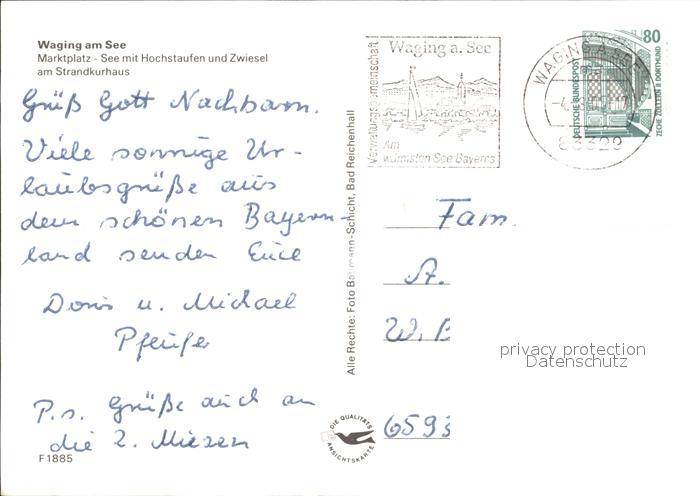 Waging am See
Marktplatz - See mit Hochstaufen und Zwiesel
am Strandkurhaus
Grüß Gott Nachbarn.
Viele sonnige Ur-
laubsgrüße aus
dem schönen Bayern-
land senden Euch
Doris u. Michael
Pfeufer
P.s. Grüße auch an
die 2. Miezen
F1885
Alle Rechte: Foto Baumann-Schicht, Bad Reichenhall
Verwaltungsgemeinschaft
Waging a. See
Am
wärmsten See Bayerns
WAGING A. SEE
83329
80
DEUTSCHE BUNDESPOST
ZECHE ZOLLERN II DORTMUND
Fam.
A.
W. B
6593
privacy protection
Datenschutz
DIE QUALITÄTS
ANSICHTSKARTE